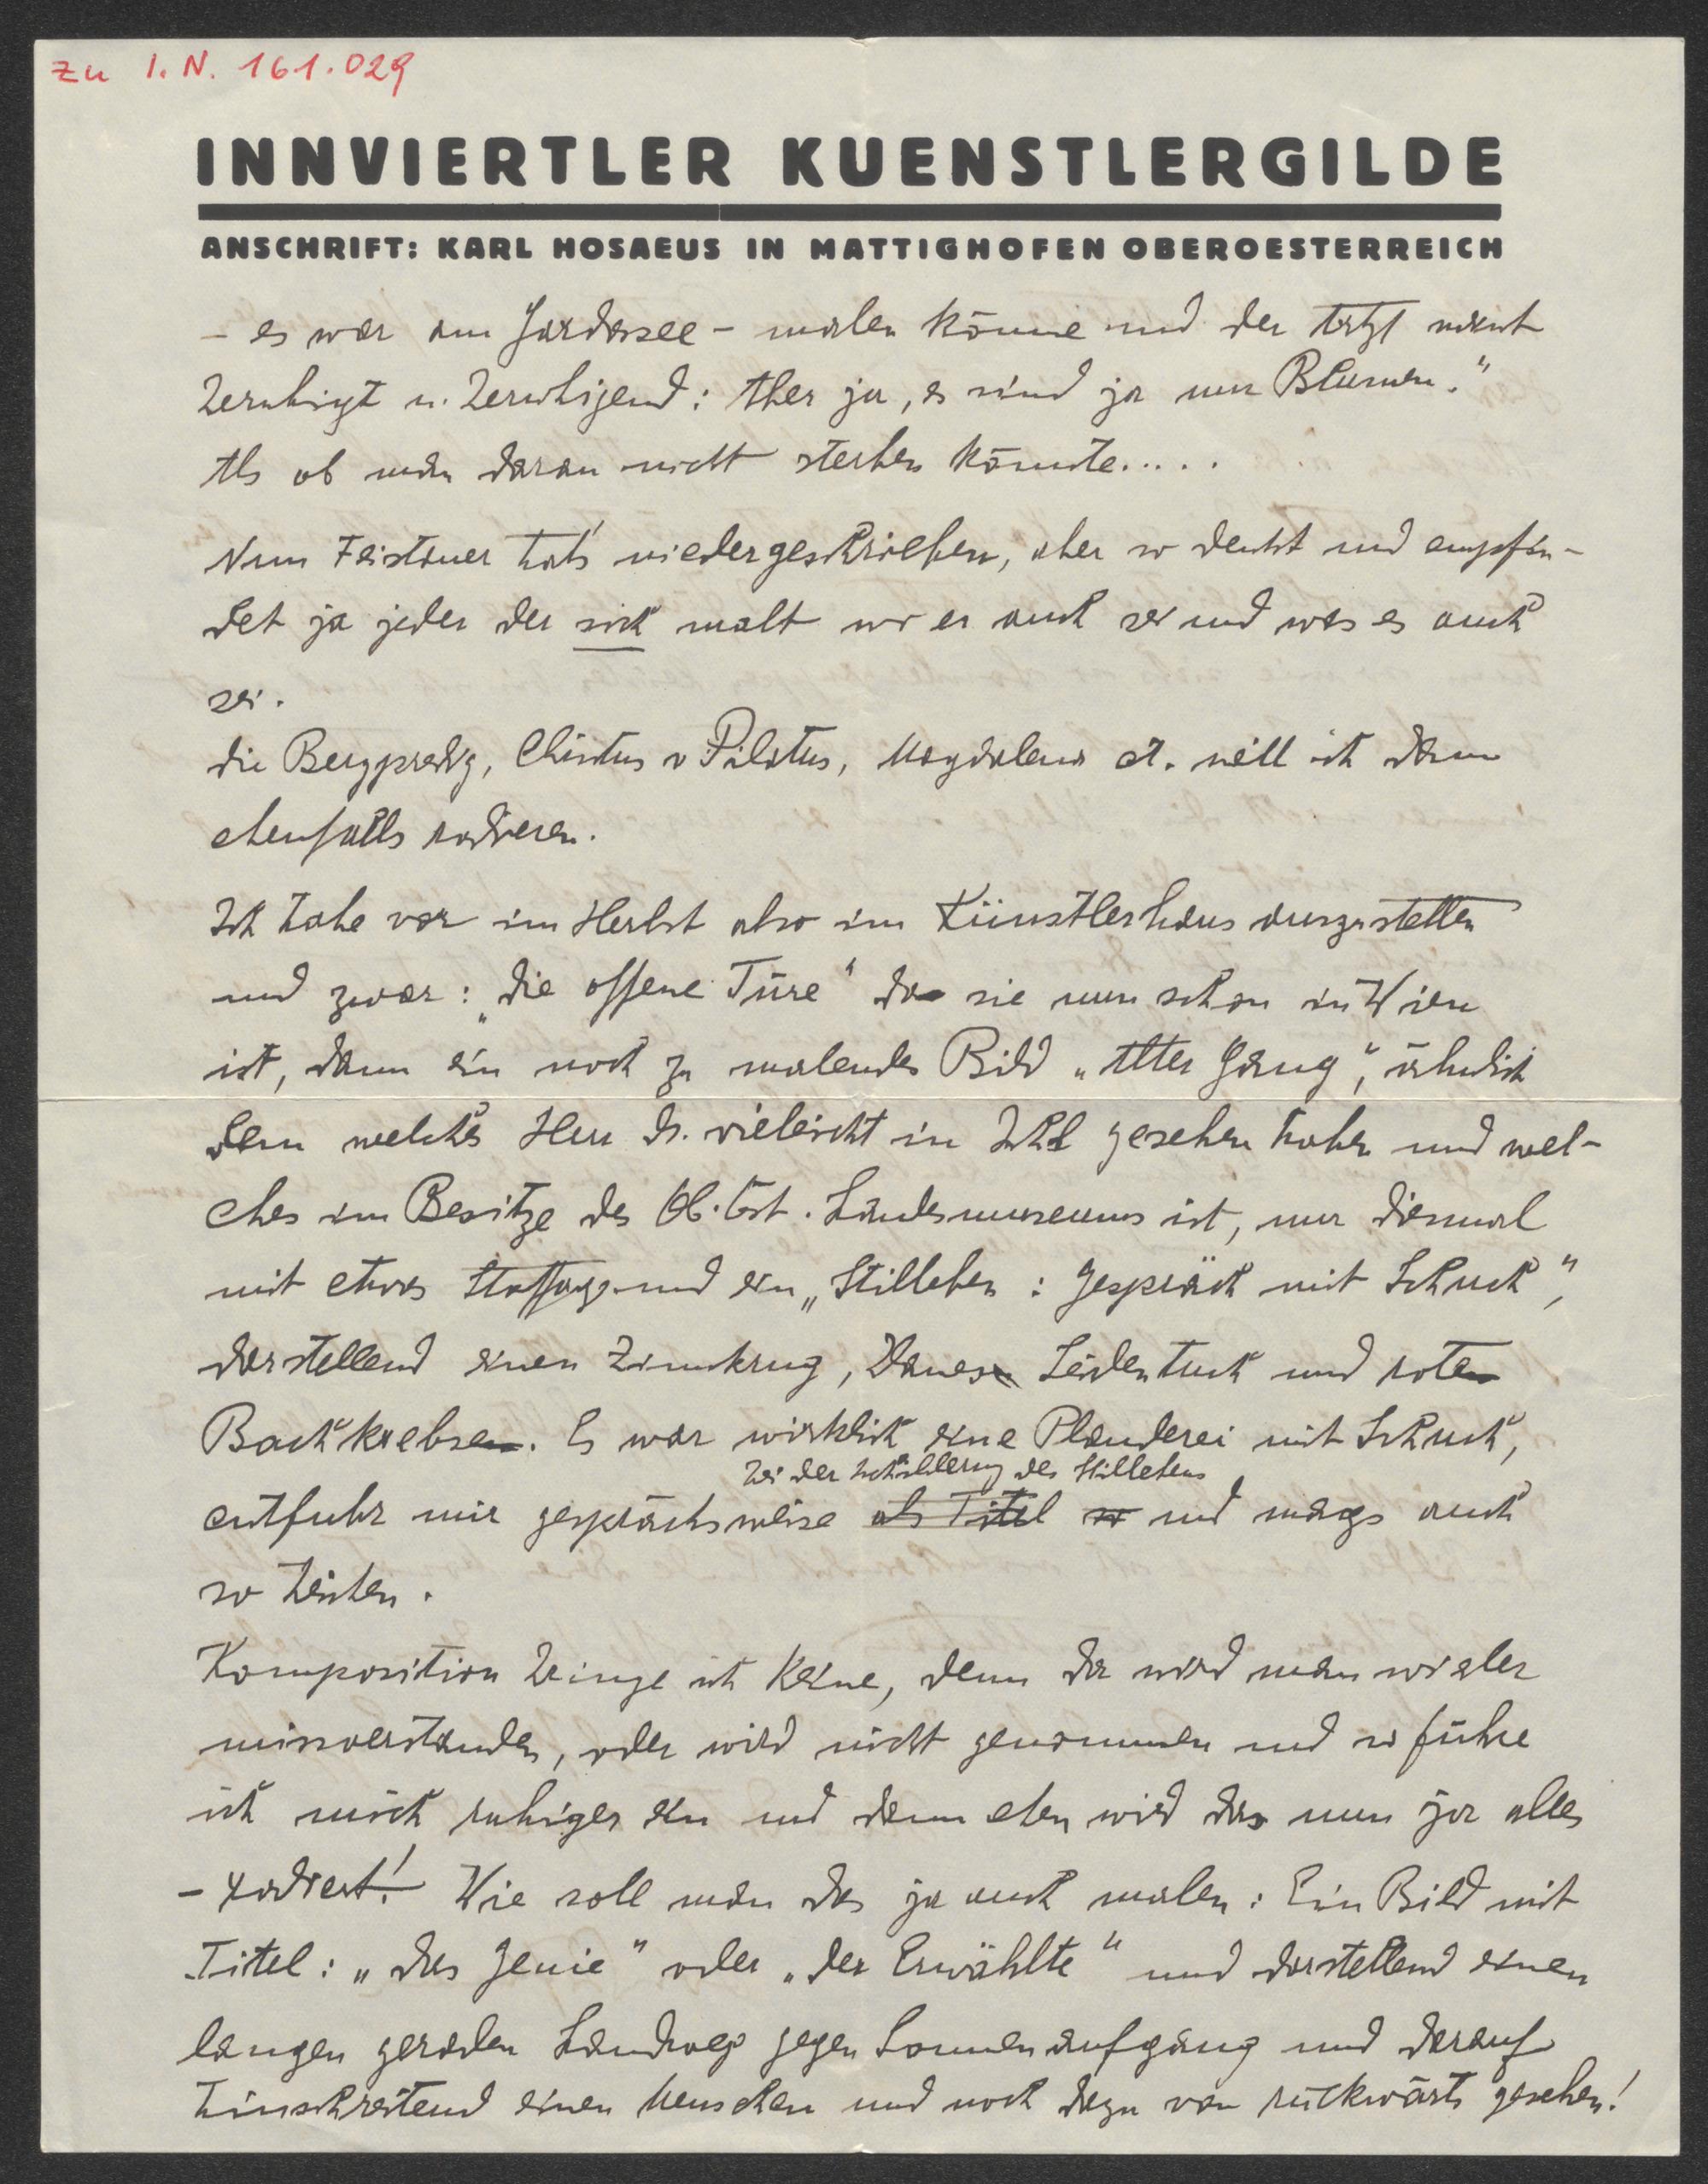 zu I. N. 161.029
INNVIERTLER KUENSTLERGILDE
ANSCHRIFT: KARL HOSAEUS IN MATTIGHOFEN OBEROESTERREICH
– es war am Gardasee – malen könne und der Arzt meint
beruhigt u. beruhigend: Aber ja, es sind ja nur Blumen."
Als ob man daran nicht sterben könnte.....
Nun Faistauer hat's niedergeschrieben, aber so denkt und empfin-
det ja jeder der sich malt wo er auch sei und was es auch
sei.
die Bergpredig, Christus v Pilatus, Magdalena et. will ich dann
ebenfalls radieren.
Ich habe vor im Herbst also im Künstlerhaus auszustellen
und zwar: „die offene Türe" da sie nun schon in Wien
ist, dann ein noch zu malendes Bild „Alter Gang", ähnlich
dem welches Herr Dr. vieleicht in Ischl gesehen haben und wel-
ches im Besitze des Ob. Öst. Landesmuseums ist, nur diesmal
mit etwas Staffage und ein „Stilleben: Gespräch mit Schuch",
darstellend einen Zinnkrug, blaues Seidentuch und rote
Bachkrebse. Es war wirklich eine Plauderei mit Schuch,
bei der Schilderung des Stillebens
entfuhr mir gesprächsweise als Titel so und mags auch
so heißen.
Komposition bringe ich keine, denn da wird man wieder
missverstanden, oder wird nicht genommen und so führe
ich mich ruhiger ein und dann eben wird das nun ja alles
– radiert! Wie soll man das ja auch malen: Ein Bild mit
Titel: „das Genie" oder „der Erwählte" und darstellend einen
langen geraden Landweg gegen Sonnenaufgang und darauf
hinschreitend einen Menschen und noch dazu von rückwärts gesehen!